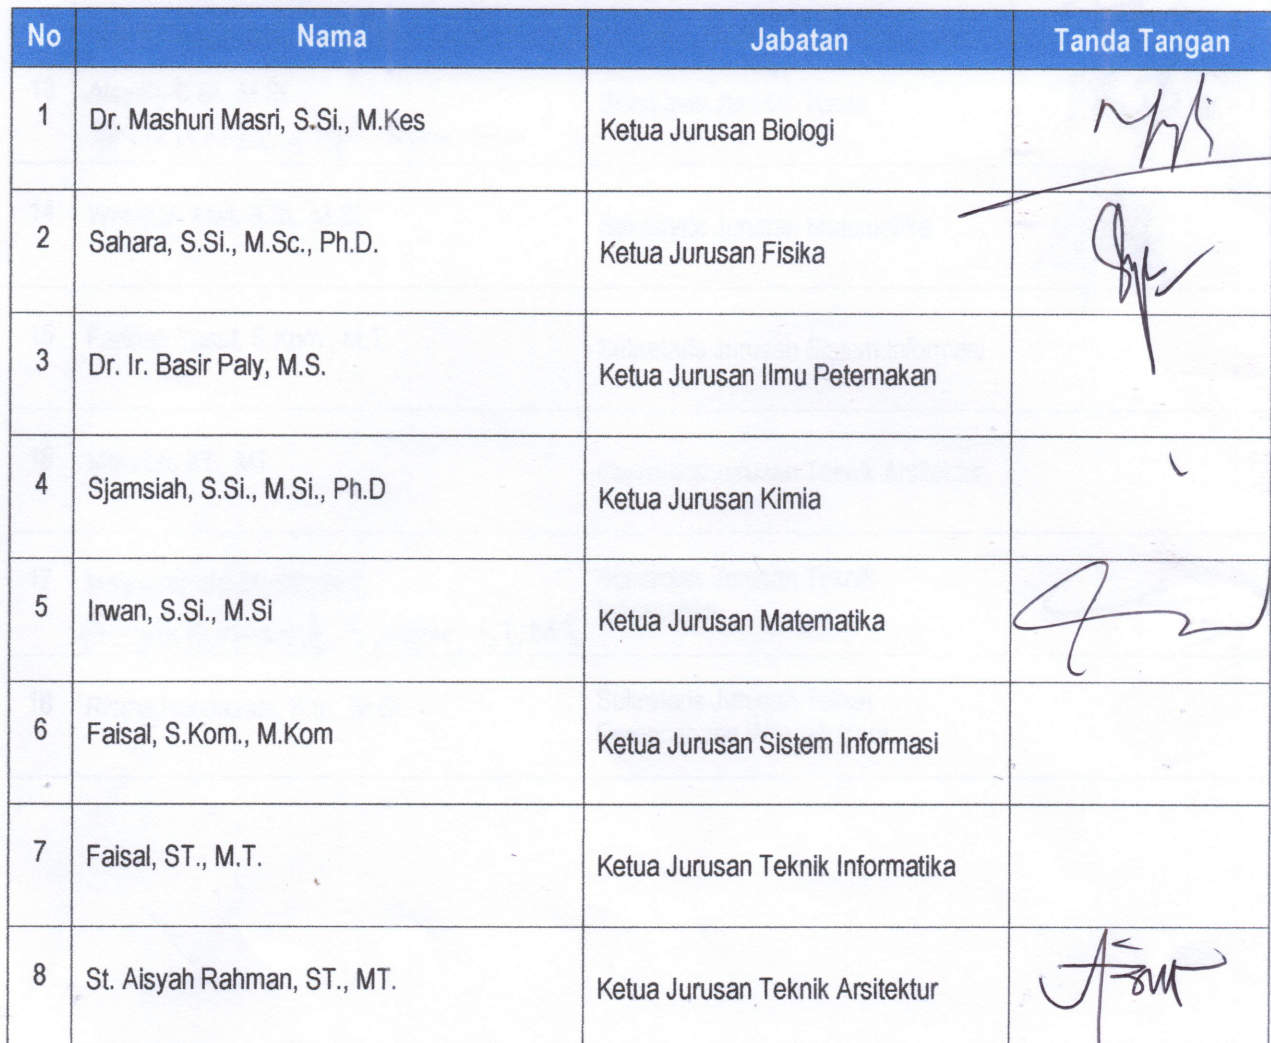 No Nama Jabatan Tanda Tangan
1 Dr. Mashuri Masri, S.Si., M.Kes Ketua Jurusan Biologi
2 Sahara, S.Si., M.Sc., Ph.D. Ketua Jurusan Fisika
3 Dr. Ir. Basir Paly, M.S. Ketua Jurusan Ilmu Peternakan
4 Sjamsiah, S.Si., M.Si., Ph.D Ketua Jurusan Kimia
5 Irwan, S.Si., M.Si Ketua Jurusan Matematika
6 Faisal, S.Kom., M.Kom Ketua Jurusan Sistem Informasi
7 Faisal, ST., M.T. Ketua Jurusan Teknik Informatika
8 St. Aisyah Rahman, ST., MT. Ketua Jurusan Teknik Arsitektur